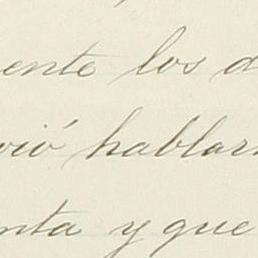 ente los d
vió hablar
nta y que